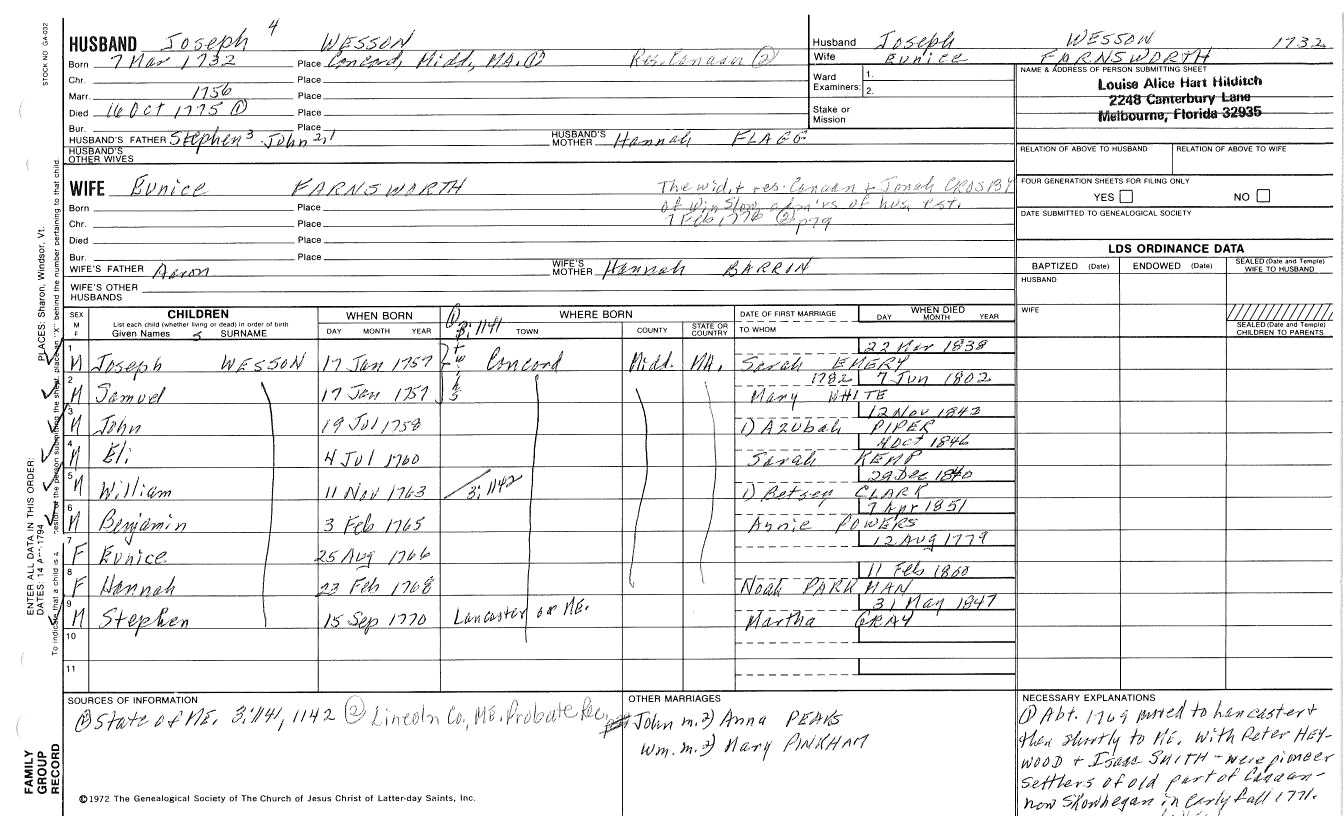 STOCK NO. GA-032
HUSBAND Joseph 4 WESSON
Born 7 Mar 1732 Place Concord, Midd, MA. ① Res. Canaan ②
Chr. Place
Marr. 1756 Place
Died 16 Oct 1775 ① Place
Bur. Place
HUSBAND'S FATHER Stephen 3 John 2,1 HUSBAND'S MOTHER Hannah FLAGG
HUSBAND'S OTHER WIVES
Husband Joseph WESSON 1732
Wife Eunice FARNSWORTH
Ward 1.
Examiners: 2.
Stake or Mission
NAME & ADDRESS OF PERSON SUBMITTING SHEET
Louise Alice Hart Hilditch
2248 Canterbury Lane
Melbourne, Florida 32935
RELATION OF ABOVE TO HUSBAND RELATION OF ABOVE TO WIFE
FOUR GENERATION SHEETS FOR FILING ONLY
YES NO
DATE SUBMITTED TO GENEALOGICAL SOCIETY
WIFE Eunice FARNSWORTH
The wid. + res. Canaan + Jonah CROSBY
of Winslow, adm'rs of hus. est.
7 Feb 1776 ② p79
Born Place
Chr. Place
Died Place
Bur. Place
WIFE'S FATHER Aaron WIFE'S MOTHER Hannah BARRIN
WIFE'S OTHER HUSBANDS
LDS ORDINANCE DATA
BAPTIZED (Date) ENDOWED (Date) SEALED (Date and Temple) WIFE TO HUSBAND
HUSBAND
WIFE
SEALED (Date and Temple) CHILDREN TO PARENTS
SEX M F
CHILDREN
List each child (whether living or dead) in order of birth
Given Names 5 SURNAME
WHEN BORN
DAY MONTH YEAR
① 3:1141
WHERE BORN
TOWN COUNTY STATE OR COUNTRY
DATE OF FIRST MARRIAGE
TO WHOM
WHEN DIED
DAY MONTH YEAR
1 M Joseph WESSON 17 Jan 1757 twins Concord Midd. MA. Sarah EMERY 22 Mar 1838
2 M Samuel 17 Jan 1757 1782 Mary WHITE 7 Jun 1802
3 M John 19 Jul 1758 1) Azubah PIPER 12 Nov 1843
4 M Eli 4 Jul 1760 Sarah KEMP 4 Oct 1846
5 M William 11 Nov 1763 3:1142 1) Betsey CLARK 29 Dec 1840
6 M Benjamin 3 Feb 1765 Annie POWERS 7 Apr 1851
7 F Eunice 25 Aug 1766 12 Aug 1779
8 F Hannah 23 Feb 1768 Noah PARKMAN 11 Feb 1860
9 M Stephen 15 Sep 1770 Lancaster or ME. Martha GRAY 31 May 1847
10
11
SOURCES OF INFORMATION
① State of ME. 3:1141, 1142 ② Lincoln Co, ME. Probate Rec,
OTHER MARRIAGES
John m. 2) Anna PEAKS
Wm. m. 2) Mary PINKHAM
NECESSARY EXPLANATIONS
① Abt. 1769 moved to Lancaster +
then shortly to ME. with Peter HEY-
WOOD + Isaac SMITH - were pioneer
settlers of old part of Canaan -
now Skowhegan in early fall 1771.
FAMILY GROUP RECORD
©1972 The Genealogical Society of The Church of Jesus Christ of Latter-day Saints, Inc.
ENTER ALL DATA IN THIS ORDER:
PLACES: Sharon, Windsor, Vt.
DATES: 14 1794
To indicate that a child is
the person submitting the sheet, place an "X" behind the number pertaining to that child